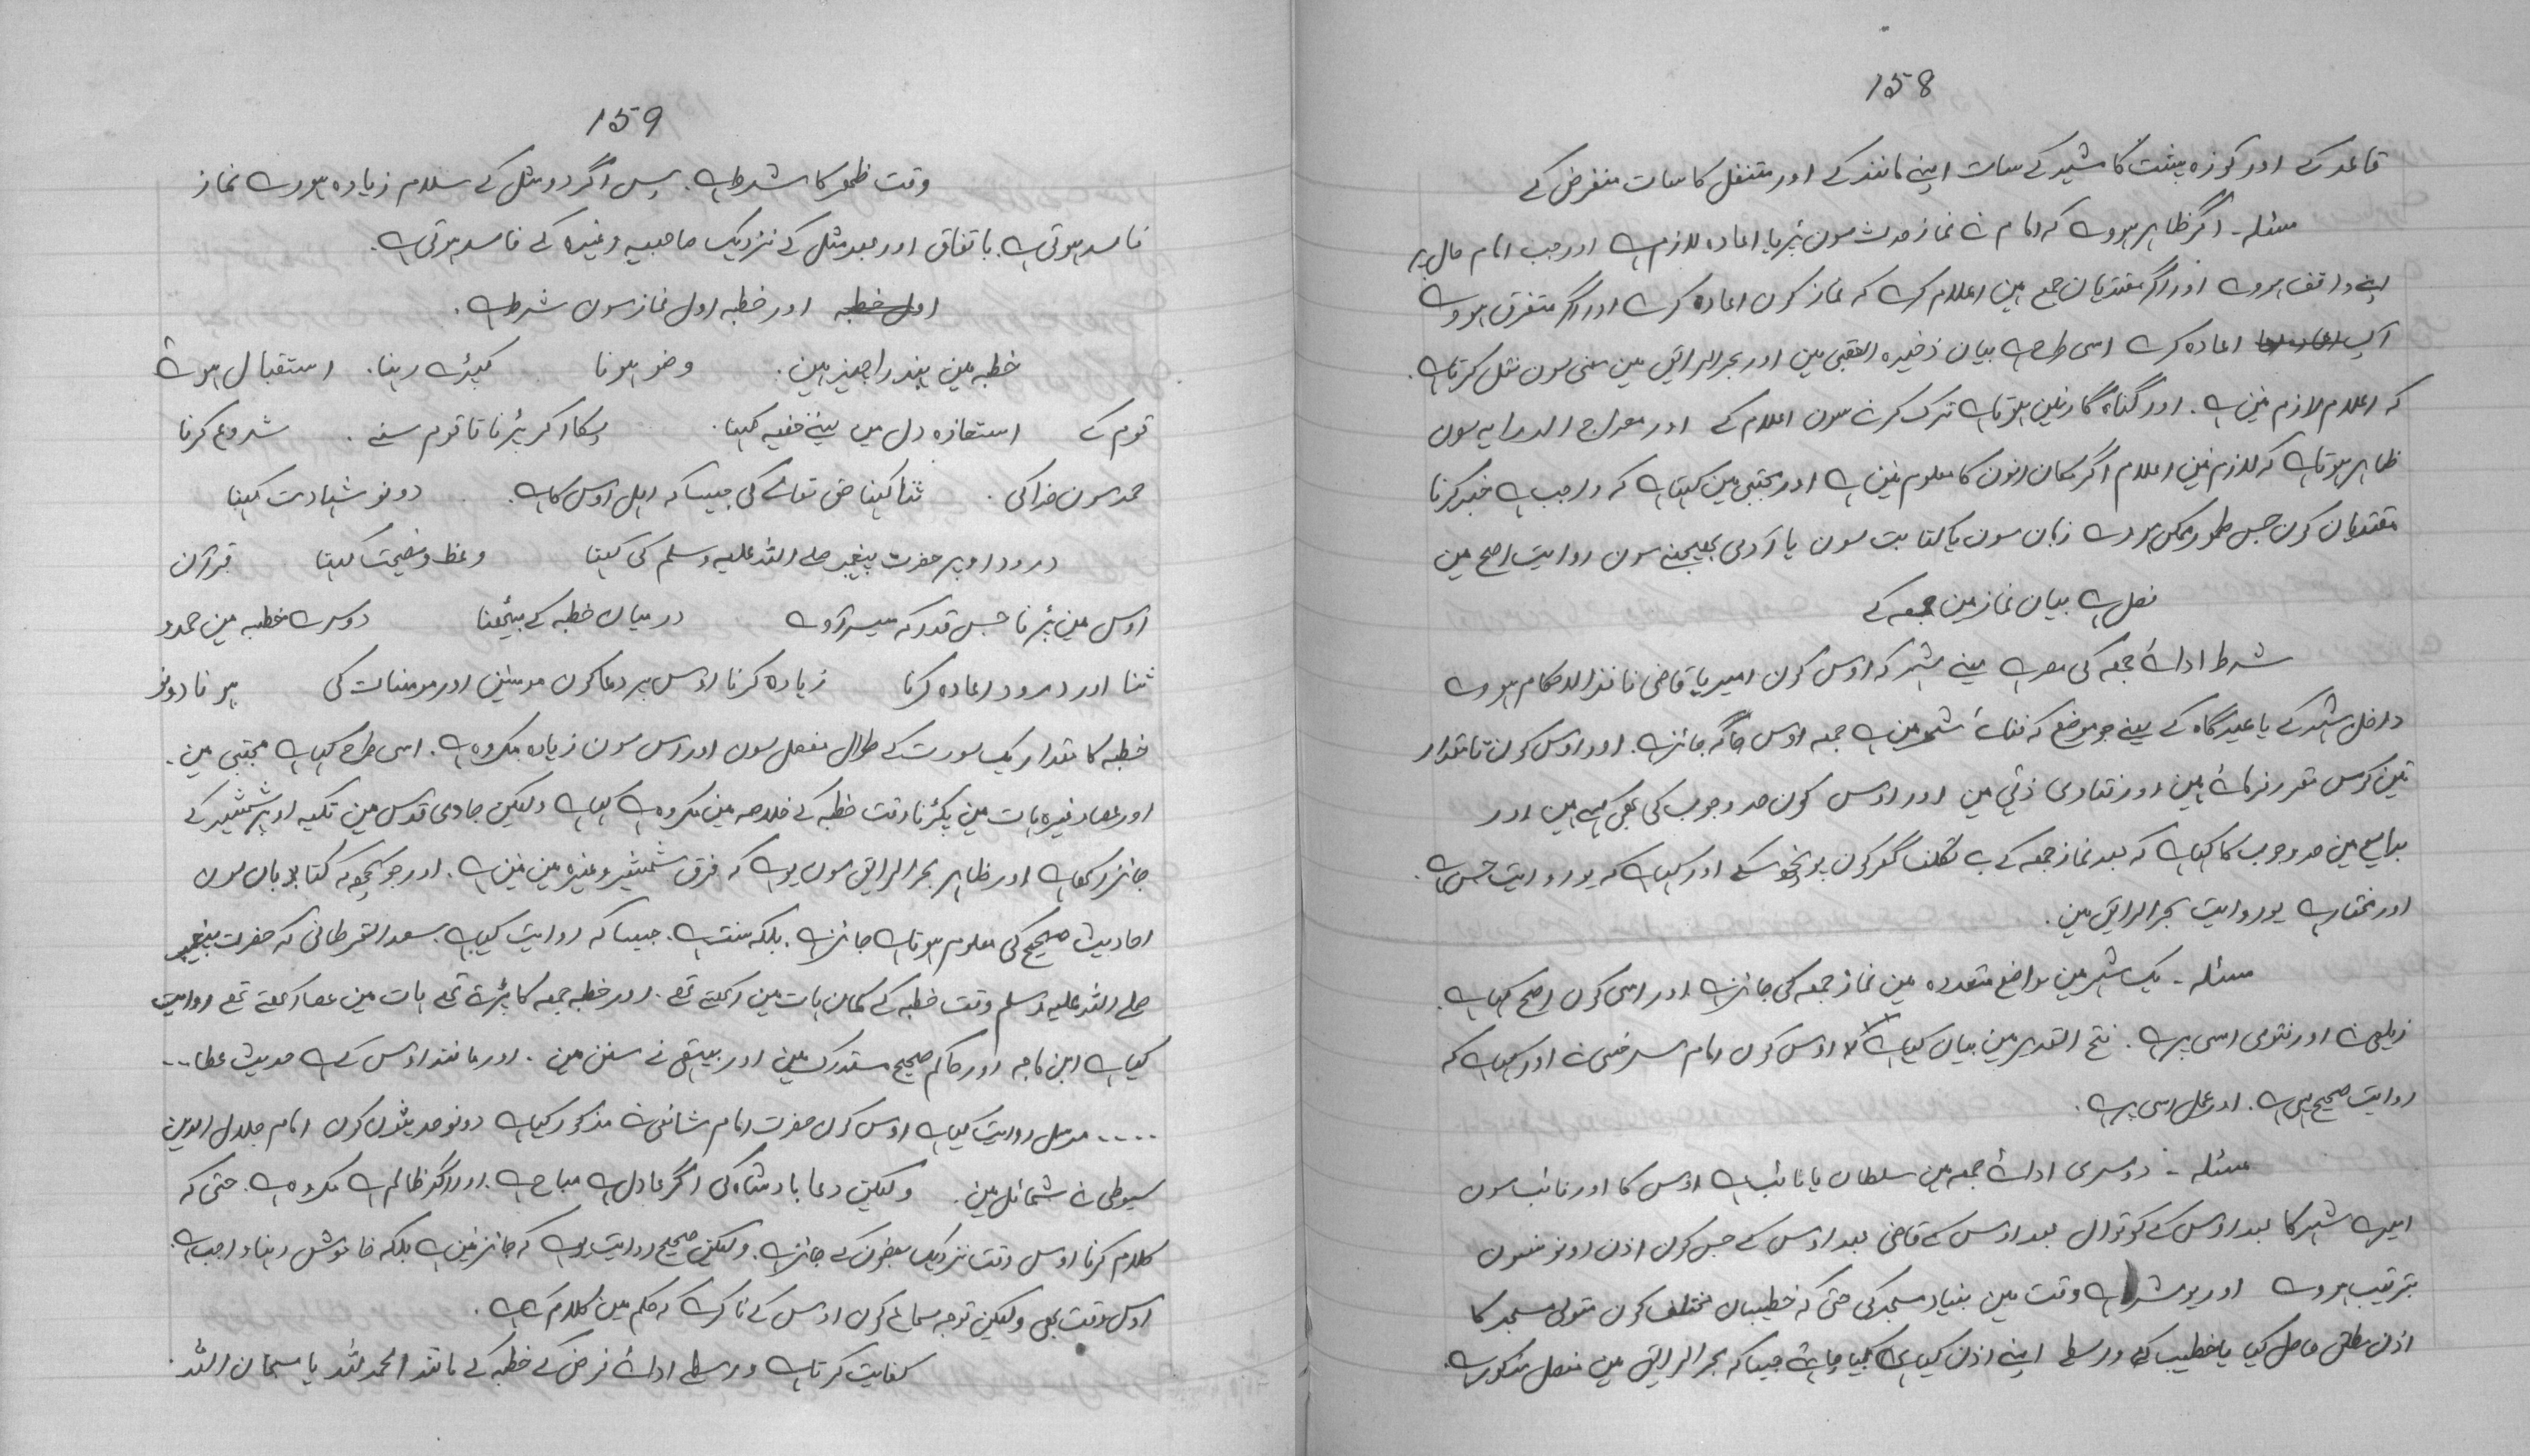 158
قاعد کے اور کوزہ پشت کا مشیر کے سات اپنے مانند کے اور متنفل کا سات مفترض کے
مسئلہ۔ اگر ظاہر ہووے کہ امام نے نماز حدث سون پڑیا اعادہ لازم ہے اور جب امام حال پر
اپنے واقف ہووے اور اگر مقتدیان جمع ہین اعلام کرے کہ نماز کون اعادہ کرے اور اگر متفرق ہووے
آپ اعادہ کرے اسی طرح ہے بیان ذخیرہ العقبی مین اور بحر الرایق مین مغنی سون نقل کرتا ہے۔
کہ اعلام لازم نین ہے۔ اور گناہ گار نین ہوتا ہے ترک کرنے سون اعلام کے اور معراج الدرایہ سون
ظاہر ہوتا ہے کہ لازم نین اعلام اگر مکان انون کا معلوم نین ہے اور مجتبی مین کہتا ہے کہ واجب ہے خبر کرنا
مقتدیان کون جس طور ممکن ہووے زبان سون یا کتابت سون یا آدمی بھیجنے سون روایت اصح مین
فصل ہے بیان نماز مین جمعہ کے
شرط ادائے جمعہ کی مصر ہے یعنے شہر کہ اوس کون امیر یا قاضی نافذ الاحکام ہووے
داخل شہر کے یا عیدگاہ کے یعنے جو موضع کہ فنائے شہر مین ہے جمعہ اوس جاگہ جائز ہے۔ اور اوس کون تا مقدار
تین کوس مقرر فرمائے ہین اور فتاوی ذہی مین اور اوس کون حد وجوب کی بھی کہے ہین اور
بدایع مین حد وجوب کا کہیا ہے کہ بعد نماز جمعہ کے بے تکلف گھر کون پونچ سکے اور کہیا ہے کہ یو روایت حسن ہے۔
اور مختار ہے یو روایت بحر الرایق مین۔
مسئلہ۔ یک شہر مین مواضع متعددہ مین نماز جمعہ کی جائز ہے اور اسی کون اصح کہیا ہے۔
زیلعی نے اور فتوی اسی پر ہے۔ فتح القدیر مین بیان کیا ہے اوس کون امام سرخسی نے اور کہیا ہے کہ
روایت صحیح یہی ہے۔ اور عمل اسی پر ہے۔
مسئلہ۔ دوسری ادائے جمعہ مین سلطان یا نائب ہے اوس کا اور نائب سون
امیر ہے شہر کا بعد اوس کے کوتوال بعد اوس کے قاضی بعد اوس کے جس کون اذن اونو نے سون
بترتیب ہووے اور یو شرط ہے وقت مین بنیاد مسجد کی حتی کہ خطیبان مختلف کون متولی مسجد کا
اذن مطلق حاصل کیا یا خطیب کے واسطے اپنے اذن کیا ہے کہیا جائے جیسا کہ بحر الرایق مین مفصل مذکور ہے۔
159
وقت ظہر کا شرط ہے۔ پس اگر دو مثل کے سلام زیادہ ہووے نماز
فاسد ہوتی ہے باتفاق اور بعد مثل کے نزدیک صاحبیہ وغیرہ کے فاسد ہوتی ہے۔
اول خطبہ اور خطبہ اول نماز سون شرط ہے۔
خطبہ مین پندرا چیز ہین۔ وضو ہونا کھڑے رہنا۔ استقبال ہونے
قوم کے استعاذہ دل مین یعنے خفیہ کہنا۔ پکار کر پڑنا تا قوم سنے۔ شروع کرنا
حمد سون خدا کی۔ ثنا کہنا حق تعالے کی جیسا کہ اہل اوس کا ہے۔ دونو شہادت کہنا
درود اوپر حضرت پیغمبر صلے اللہ علیہ وسلم کی کہنا وعظ و نصیحت کہنا قرآن
اوس مین پڑنا جس قدر کہ میسر آوے درمیان خطبہ کے بیٹھنا دوسرے خطبہ مین حمد و
ثنا اور درود اعادہ کرنا زیادہ کرنا اوس پر دعا کون مومنین اور مومنات کی ہونا دونو
خطبہ کا مقدار یک سورت کے طوال مفصل سون اور اس سون زیادہ مکروہ ہے۔ اسی طرح کہیا ہے مجتبی مین۔
اور عصا وغیرہ ہات مین پکڑنا وقت خطبہ کے خلاصہ مین مکروہ ہے کہیا ہے ولیکن حاوی قدسی مین تکیہ اوپر شمشیر کے
جائز رکھیا ہے اور ظاہر بحر الرایق سون یو ہے کہ فرق شمشیر وغیرہ مین نین ہے۔ اور جو کچھ کہ کتابان سون
احادیث صحیح کی معلوم ہوتا ہے جائز ہے۔ بلکہ سنت ہے۔ جیسا کہ روایت کیا ہے۔ سعد القرطانی کہ حضرت پیغمبر
صلے اللہ علیہ وسلم وقت خطبہ کے کمان ہات مین رکھتے تھے۔ اور خطبہ جمعہ کا پڑتے تھے ہات مین عصا رکھتے تھے روایت
کیا ہے ابن ماجہ اور حاکم صحیح مستدرک مین اور بیہقی نے سنن مین۔ اور مانند اوس کے ہے حدیث عطا ...
..... مرسل روایت کیا ہے اوس کون حضرت امام شافعی نے مذکور کیا ہے دونو حدیثون کون امام جلال الدین
سیوطی نے شمائل مین۔ ولیکن دعا بادشاہ کی اگر عادل ہے مباح ہے۔ اور اگر ظالم ہے مکروہ ہے۔ حتی کہ
کلام کرنا اوس وقت نزدیک بعضون کے جائز ہے۔ ولیکن صحیح روایت یو ہے کہ جائز نین ہے بلکہ خاموش رہنا واجب ہے۔
اوس وقت بھی ولیکن توجہ سماع کون اوس کے نا کرے کہ حکم مین کلام کے ہے۔
کفایت کرتا ہے واسطے ادائے فرض کے خطبہ کے مانند الحمد للہ یا سبحان اللہ۔